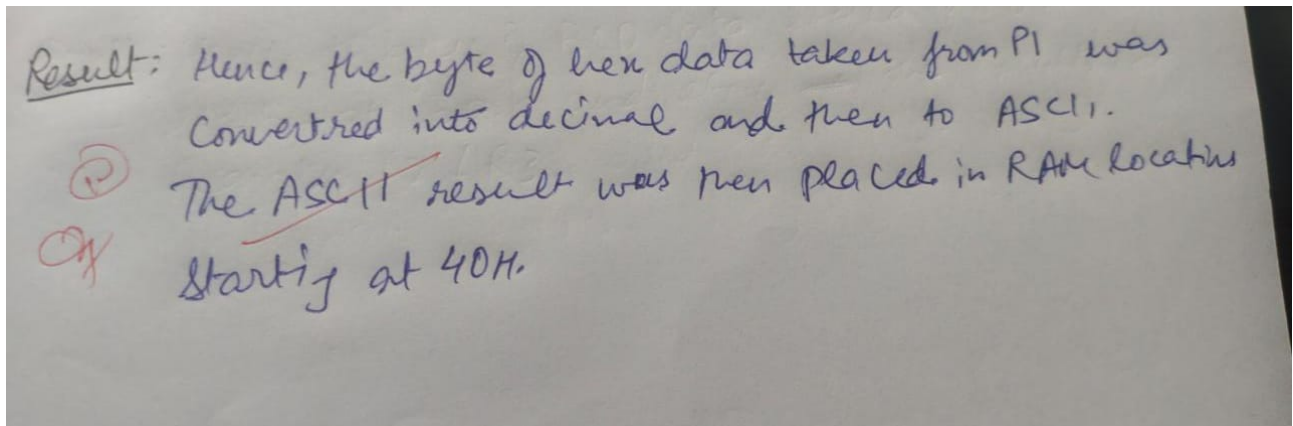 Result: Hence, the byte of hex data taken from P1 was
Convertred into decimal and then to ASCII.
The ASCII result was then placed in RAM locatins
Startig at 40H.